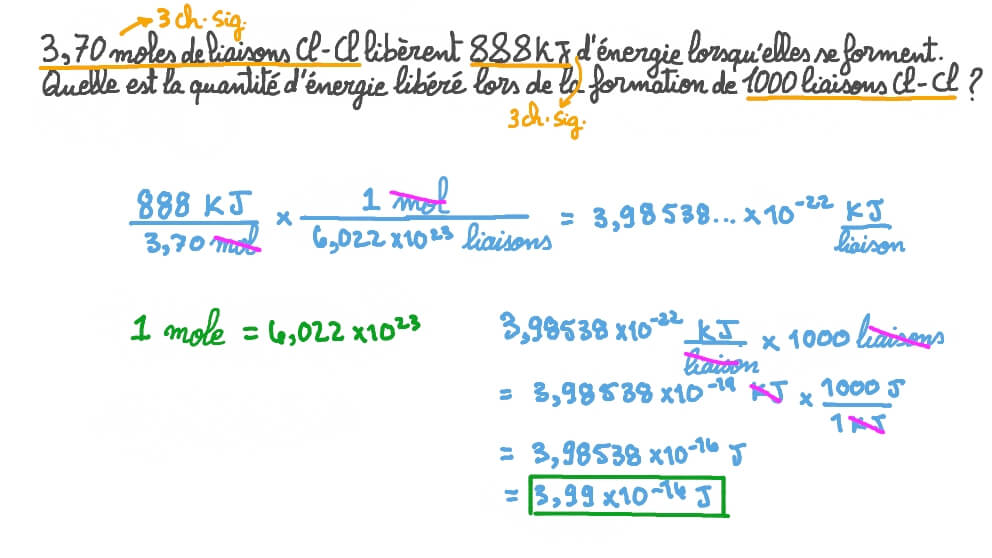 3 ch. sig.
3,70 moles de liaisons Cl-Cl libèrent 888 KJ d'énergie lorsqu'elles se forment.
Quelle est la quantité d'énergie libéré lors de la formation de 1000 liaisons Cl-Cl ?
3 ch. sig.
888 KJ / 3,70 mol × 1 mol / 6,022 ×10²³ liaisons = 3,98538... ×10⁻²² KJ / liaison
1 mole = 6,022 ×10²³
3,98538 ×10⁻²² KJ / liaison × 1000 liaisons
= 3,98538 ×10⁻¹⁹ KJ × 1000 J / 1 KJ
= 3,98538 ×10⁻¹⁶ J
= 3,99 ×10⁻¹⁶ J